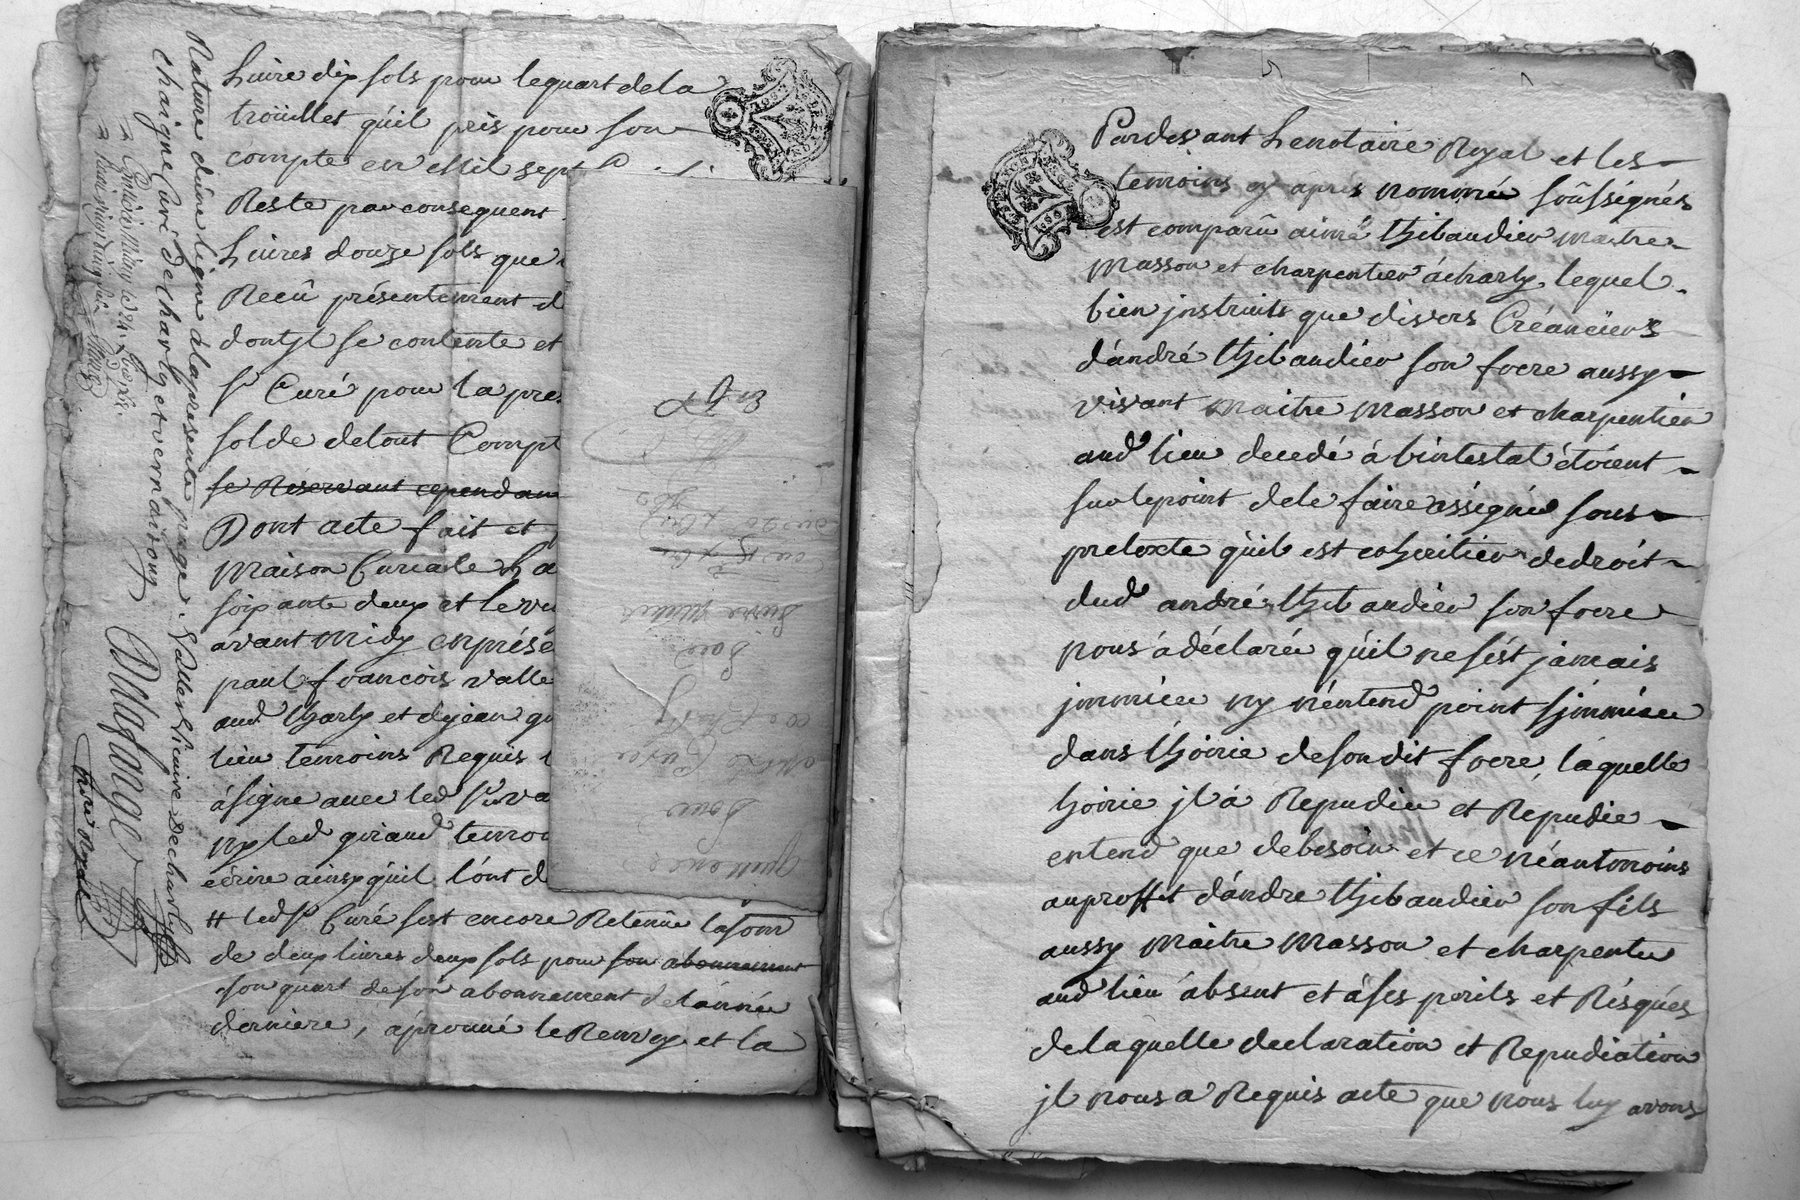 Livre dix sols pour lequart dela
troüillet qúil pris pour son
compte en Mil sept
Reste par consequent
Livres douze sols que
Recû présentement d
dontjl se contente et
sr Curé pour la pre
solde detout Compt
se Réservant cependan
Dont acte fait et
maison Curiale
soixante deux et le
avant midy enprése
paul françois valle
aud Charly et
lieu temoins Requis
ásigné avec led Sr
ny led giraud temoi
écrire ainsy qúil l'ont d
# led Sr Curé sest encore Retenüe lasom
de deux livres deux sols pour son abonnement
son quart de son abonnement del'année
derniere, áprouvé le Renvoy et la
Nature d'une ligne àlapresente page. Valler vicaire de charly
chaigne Curé de charly et vernaison
Dalafange
nore Royal
quittance
pour
Curé
de Charly
pour
Pardevant Lenotaire Royal et les
temoins cy apres nommés soûssignés
est comparû aimé thibaudier maitre
masson et charpentier ácharly, lequel
bien jnstruits que divers Créanciers
d'andré thibaudier son frere aussy
vivant maitre masson et charpentier
aud lieu decedé ábintestat étoient
sur lepoint dele faire ássigner sous
pretexte qúil est cohéritier dedroit
dud andré thibaudier son frere
nous ádéclaré qúil nesést jamais
jmmicée ny n'entend point sjmmisce
dans lhoirie desondit frere, laquelle
hoirie jl á Repudiée et Repudie
entend que debesoin et ce néantmoins
auproffit d'andre thibaudier son fils
aussy maitre masson et charpentier
aud lieu ábsent et áses perils et Résques
delaquelle declaration et Repudiation
jl nous a Requis acte que nous luy avons